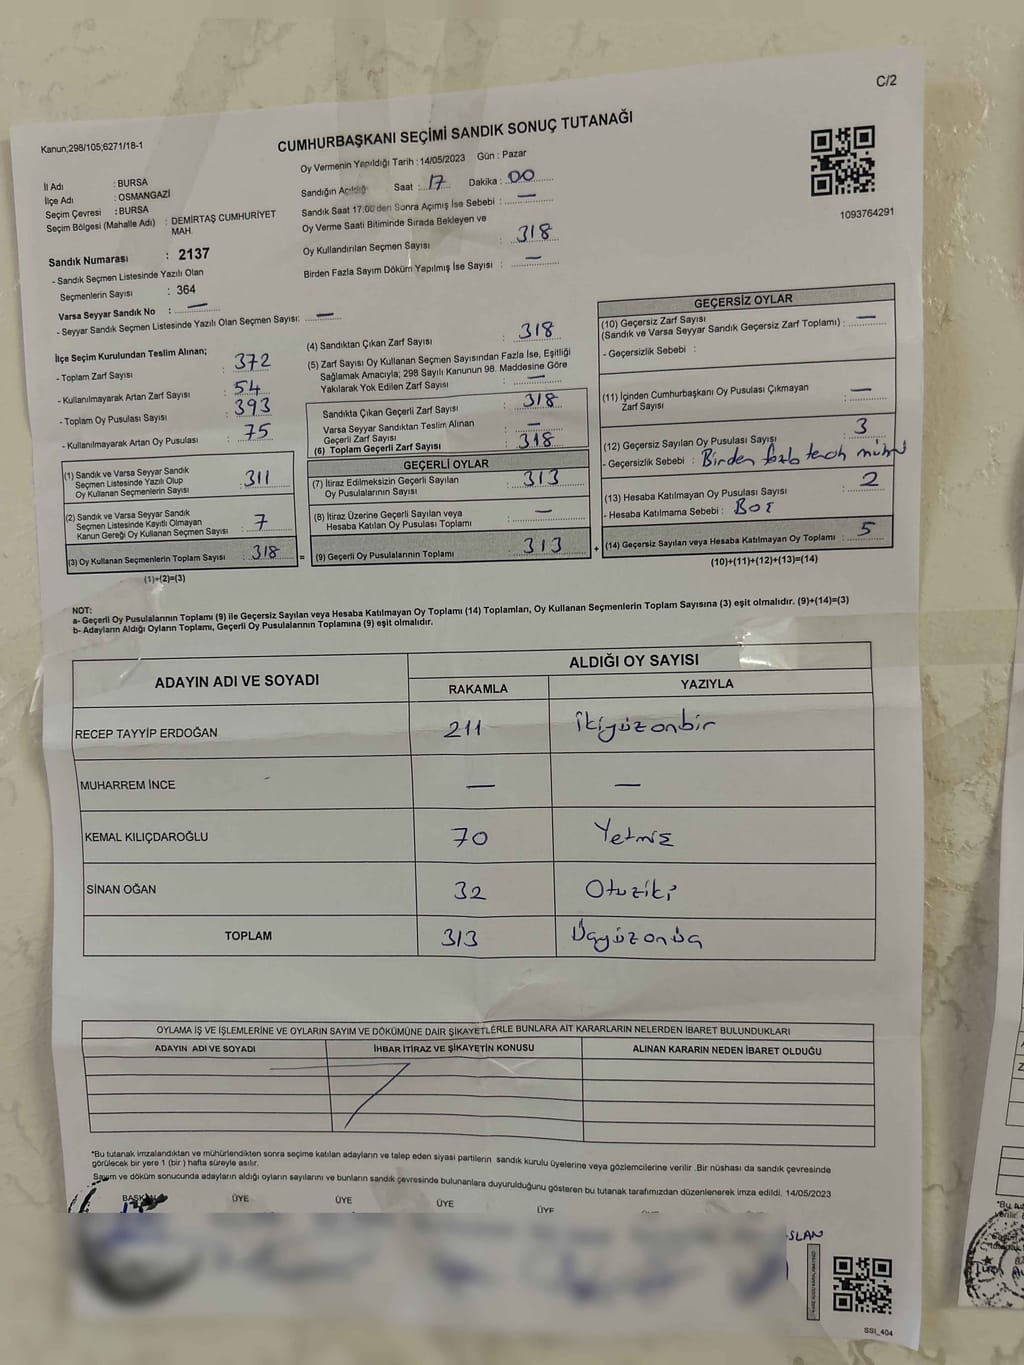 C/2
Kanun;298/105;6271/18-1
CUMHURBAŞKANI SEÇİMİ SANDIK SONUÇ TUTANAĞI
Oy Vermenin Yapıldığı Tarih : 14/05/2023 Gün : Pazar
İl Adı : BURSA
İlçe Adı : OSMANGAZİ
Seçim Çevresi : BURSA
Seçim Bölgesi (Mahalle Adı) : DEMİRTAŞ CUMHURİYET
MAH.
Sandık Numarası : 2137
- Sandık Seçmen Listesinde Yazılı Olan
Seçmenlerin Sayısı : 364
Varsa Seyyar Sandık No : —
- Seyyar Sandık Seçmen Listesinde Yazılı Olan Seçmen Sayısı: —
Sandığın Açıldığı Saat : 17 Dakika : 00
Sandık Saat 17.00'den Sonra Açımış İse Sebebi : —
Oy Verme Saati Bitiminde Sırada Bekleyen ve
Oy Kullandırılan Seçmen Sayısı : 318
Birden Fazla Sayım Döküm Yapılmış İse Sayısı : —
1093764291
İlçe Seçim Kurulundan Teslim Alınan;
- Toplam Zarf Sayısı : 372
- Kullanılmayarak Artan Zarf Sayısı : 54
- Toplam Oy Pusulası Sayısı : 393
- Kullanılmayarak Artan Oy Pusulası : 75
(1) Sandık ve Varsa Seyyar Sandık
Seçmen Listesinde Yazılı Olup
Oy Kullanan Seçmenlerin Sayısı : 311
(2) Sandık ve Varsa Seyyar Sandık
Seçmen Listesinde Kayıtlı Olmayan
Kanun Gereği Oy Kullanan Seçmen Sayısı : 7
(3) Oy Kullanan Seçmenlerin Toplam Sayısı : 318
(1)+(2)=(3)
=
(4) Sandıktan Çıkan Zarf Sayısı : 318
(5) Zarf Sayısı Oy Kullanan Seçmen Sayısından Fazla İse, Eşitliği
Sağlamak Amacıyla; 298 Sayılı Kanunun 98. Maddesine Göre
Yakılarak Yok Edilen Zarf Sayısı : —
Sandıkta Çıkan Geçerli Zarf Sayısı : 318
Varsa Seyyar Sandıktan Teslim Alınan
Geçerli Zarf Sayısı : —
(6) Toplam Geçerli Zarf Sayısı : 318
GEÇERLİ OYLAR
(7) İtiraz Edilmeksizin Geçerli Sayılan
Oy Pusulalarının Sayısı : 313
(8) İtiraz Üzerine Geçerli Sayılan veya
Hesaba Katılan Oy Pusulası Toplamı : —
(9) Geçerli Oy Pusulalarının Toplamı : 313
+
GEÇERSİZ OYLAR
(10) Geçersiz Zarf Sayısı
(Sandık ve Varsa Seyyar Sandık Geçersiz Zarf Toplamı) : —
- Geçersizlik Sebebi :
(11) İçinden Cumhurbaşkanı Oy Pusulası Çıkmayan
Zarf Sayısı : —
(12) Geçersiz Sayılan Oy Pusulası Sayısı : 3
- Geçersizlik Sebebi : Birden fazla tercih mührü
(13) Hesaba Katılmayan Oy Pusulası Sayısı : 2
- Hesaba Katılmama Sebebi : Boş
(14) Geçersiz Sayılan veya Hesaba Katılmayan Oy Toplamı : 5
(10)+(11)+(12)+(13)=(14)
NOT:
a- Geçerli Oy Pusulalarının Toplamı (9) ile Geçersiz Sayılan veya Hesaba Katılmayan Oy Toplamı (14) Toplamları, Oy Kullanan Seçmenlerin Toplam Sayısına (3) eşit olmalıdır. (9)+(14)=(3)
b- Adayların Aldığı Oyların Toplamı, Geçerli Oy Pusulalarının Toplamına (9) eşit olmalıdır.
ADAYIN ADI VE SOYADI
ALDIĞI OY SAYISI
RAKAMLA YAZIYLA
RECEP TAYYİP ERDOĞAN 211 İkiyüzonbir
MUHARREM İNCE — —
KEMAL KILIÇDAROĞLU 70 Yetmiş
SİNAN OĞAN 32 Otuziki
TOPLAM 313 Üçyüzonüç
OYLAMA İŞ VE İŞLEMLERİNE VE OYLARIN SAYIM VE DÖKÜMÜNE DAİR ŞİKAYETLERLE BUNLARA AİT KARARLARIN NELERDEN İBARET BULUNDUKLARI
ADAYIN ADI VE SOYADI İHBAR İTİRAZ VE ŞİKAYETİN KONUSU ALINAN KARARIN NEDEN İBARET OLDUĞU
*Bu tutanak imzalandıktan ve mühürlendikten sonra seçime katılan adayların ve talep eden siyasi partilerin sandık kurulu üyelerine veya gözlemcilerine verilir .Bir nüshası da sandık çevresinde
görülecek bir yere 1 (bir ) hafta süreyle asılır.
Sayım ve döküm sonucunda adayların aldığı oyların sayılarını ve bunların sandık çevresinde bulunanlara duyurulduğunu gösteren bu tutanak tarafımızdan düzenlenerek imza edildi. 14/05/2023
BAŞKAN ÜYE ÜYE ÜYE ÜYE
SLAN
SSI_404